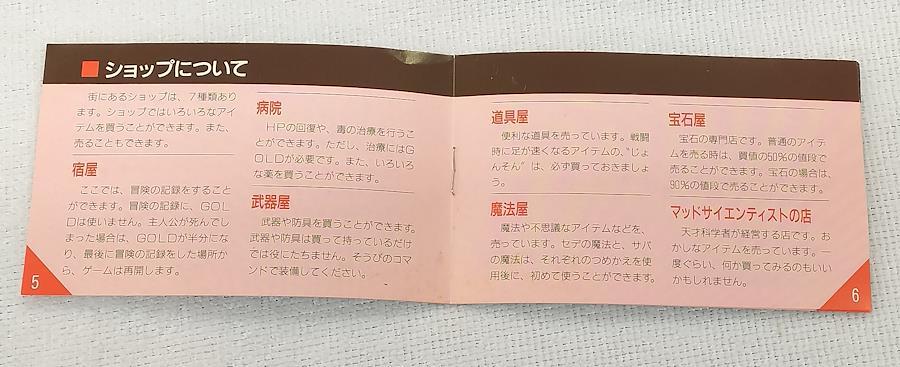 ■ショップについて
街にあるショップは、7種類あり
ます。ショップではいろいろなアイ
テムを買うことができます。また、
売ることもできます。
宿屋
ここでは、冒険の記録をすること
ができます。冒険の記録に、GOL
Dは使いません。主人公が死んでし
まった場合は、GOLDが半分にな
り、最後に冒険の記録をした場所か
ら、ゲームは再開します。
5
病院
HPの回復や、毒の治療を行うこ
とができます。ただし、治療にはG
OLDが必要です。また、いろいろ
な薬を買うことができます。
武器屋
武器や防具を買うことができます。
武器や防具は買って持っているだけ
では役にたちません。そうびのコマ
ンドで装備してください。
道具屋
便利な道具を売っています。戦闘
時に足が速くなるアイテムの、“じょ
んそん”は、必ず買っておきましょ
う。
魔法屋
魔法や不思議なアイテムなどを、
売っています。セデの魔法と、サバ
の魔法は、それぞれのつめかえを使
用後に、初めて使うことができます。
宝石屋
宝石の専門店です。普通のアイテ
ムを売る時は、買値の50%の値段で
売ることができます。宝石の場合は、
90%の値段で売ることができます。
マッドサイエンティストの店
天才科学者が経営する店です。お
かしなアイテムを売っています。一
度ぐらい、何か買ってみるのもいい
かもしれません。
6